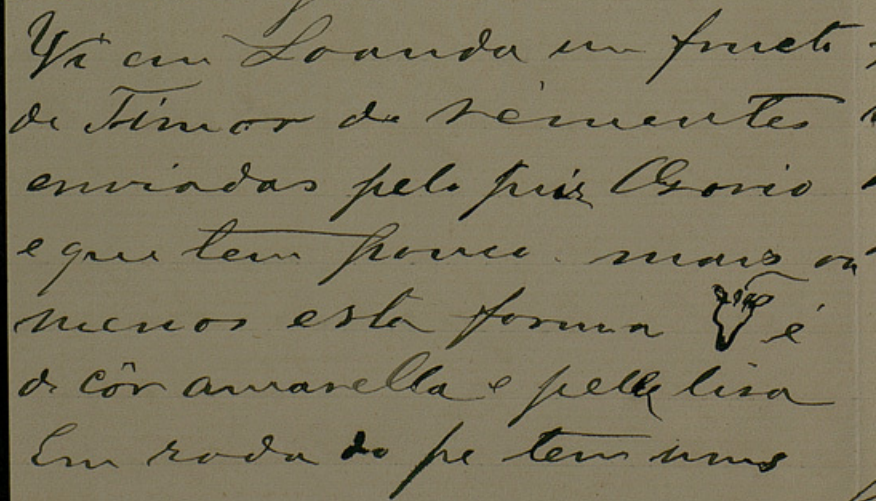 Vi em Loanda um fructo
de Timor de sementes
enviadas pelo juiz Osorio
e que tem pouco mais ou
menos esta forma é
de côr amarella e pelle lisa
Em roda do pe tem uns